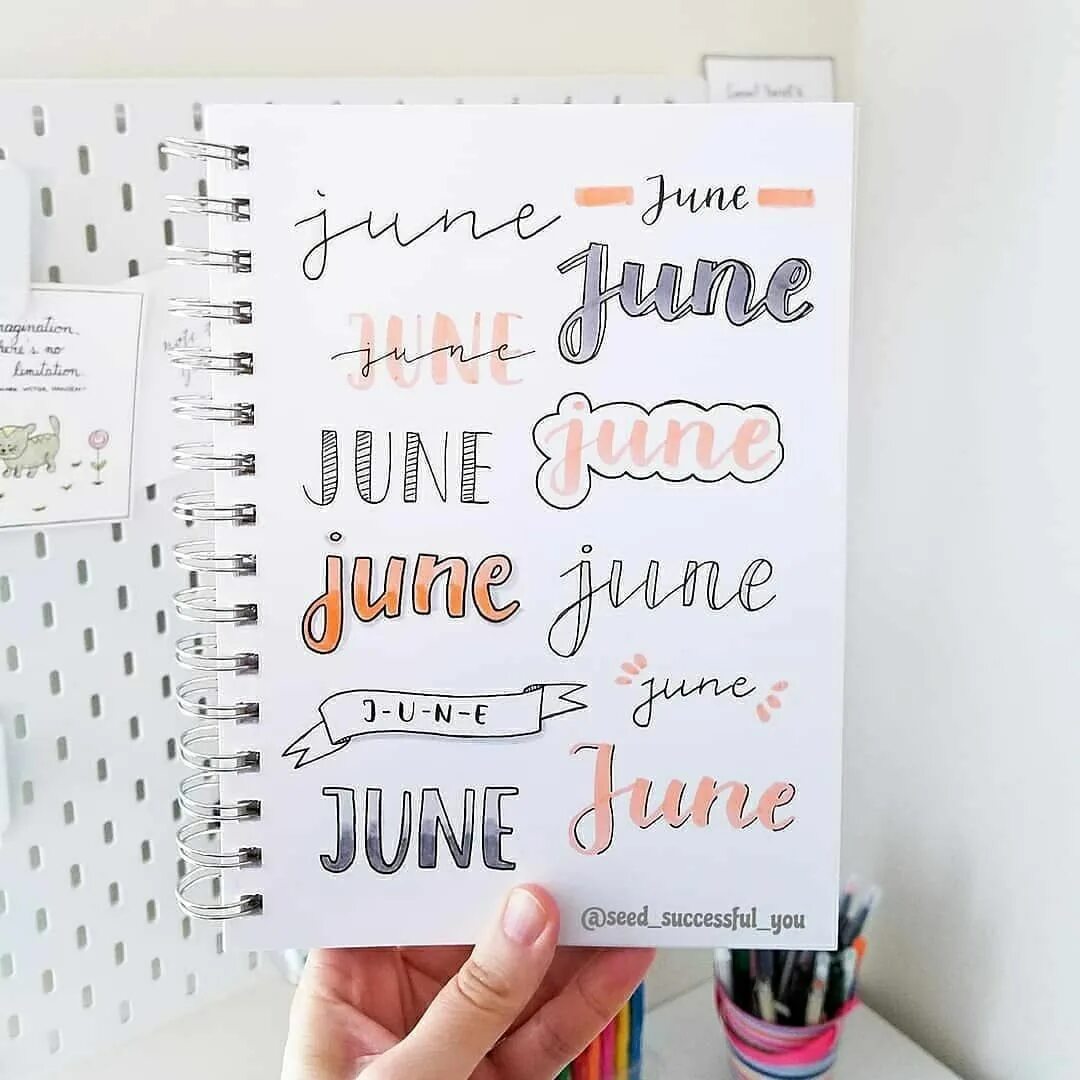 june
June
June
JUNE
june
JUNE
june
june
june
J-U-N-E
june
JUNE
June
@seed_successful_you
magination.
here's no
limitation.